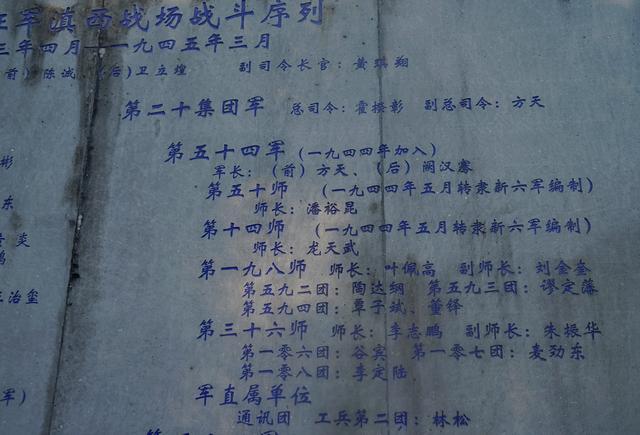 征军滇西战场战斗序列
三年四月——一九四五年三月
前）陈诚、（后）卫立煌 副司令长官：黄琪翔
第二十集团军 总司令：霍揆彰 副总司令：方天
彬
第五十四军（一九四四年加入）
军长：（前）方天、（后）阙汉骞
东
第五十师 （一九四四年五月转隶新六军编制）
师长：潘裕昆
第十四师 （一九四四年五月转隶新六军编制）
奕
师长：龙天武
鹏
第一九八师 师长：叶佩高 副师长：刘金奎
王治玺
第五九二团：陶达纲 第五九三团：谬定藩
第五九四团：覃子斌、董铎
第三十六师 师长：李志鹏 副师长：朱振华
第一零六团：谷宾 第一零七团：麦劲东
第一零八团：李定陆
军）
军直属单位
通讯团 工兵第二团：林松